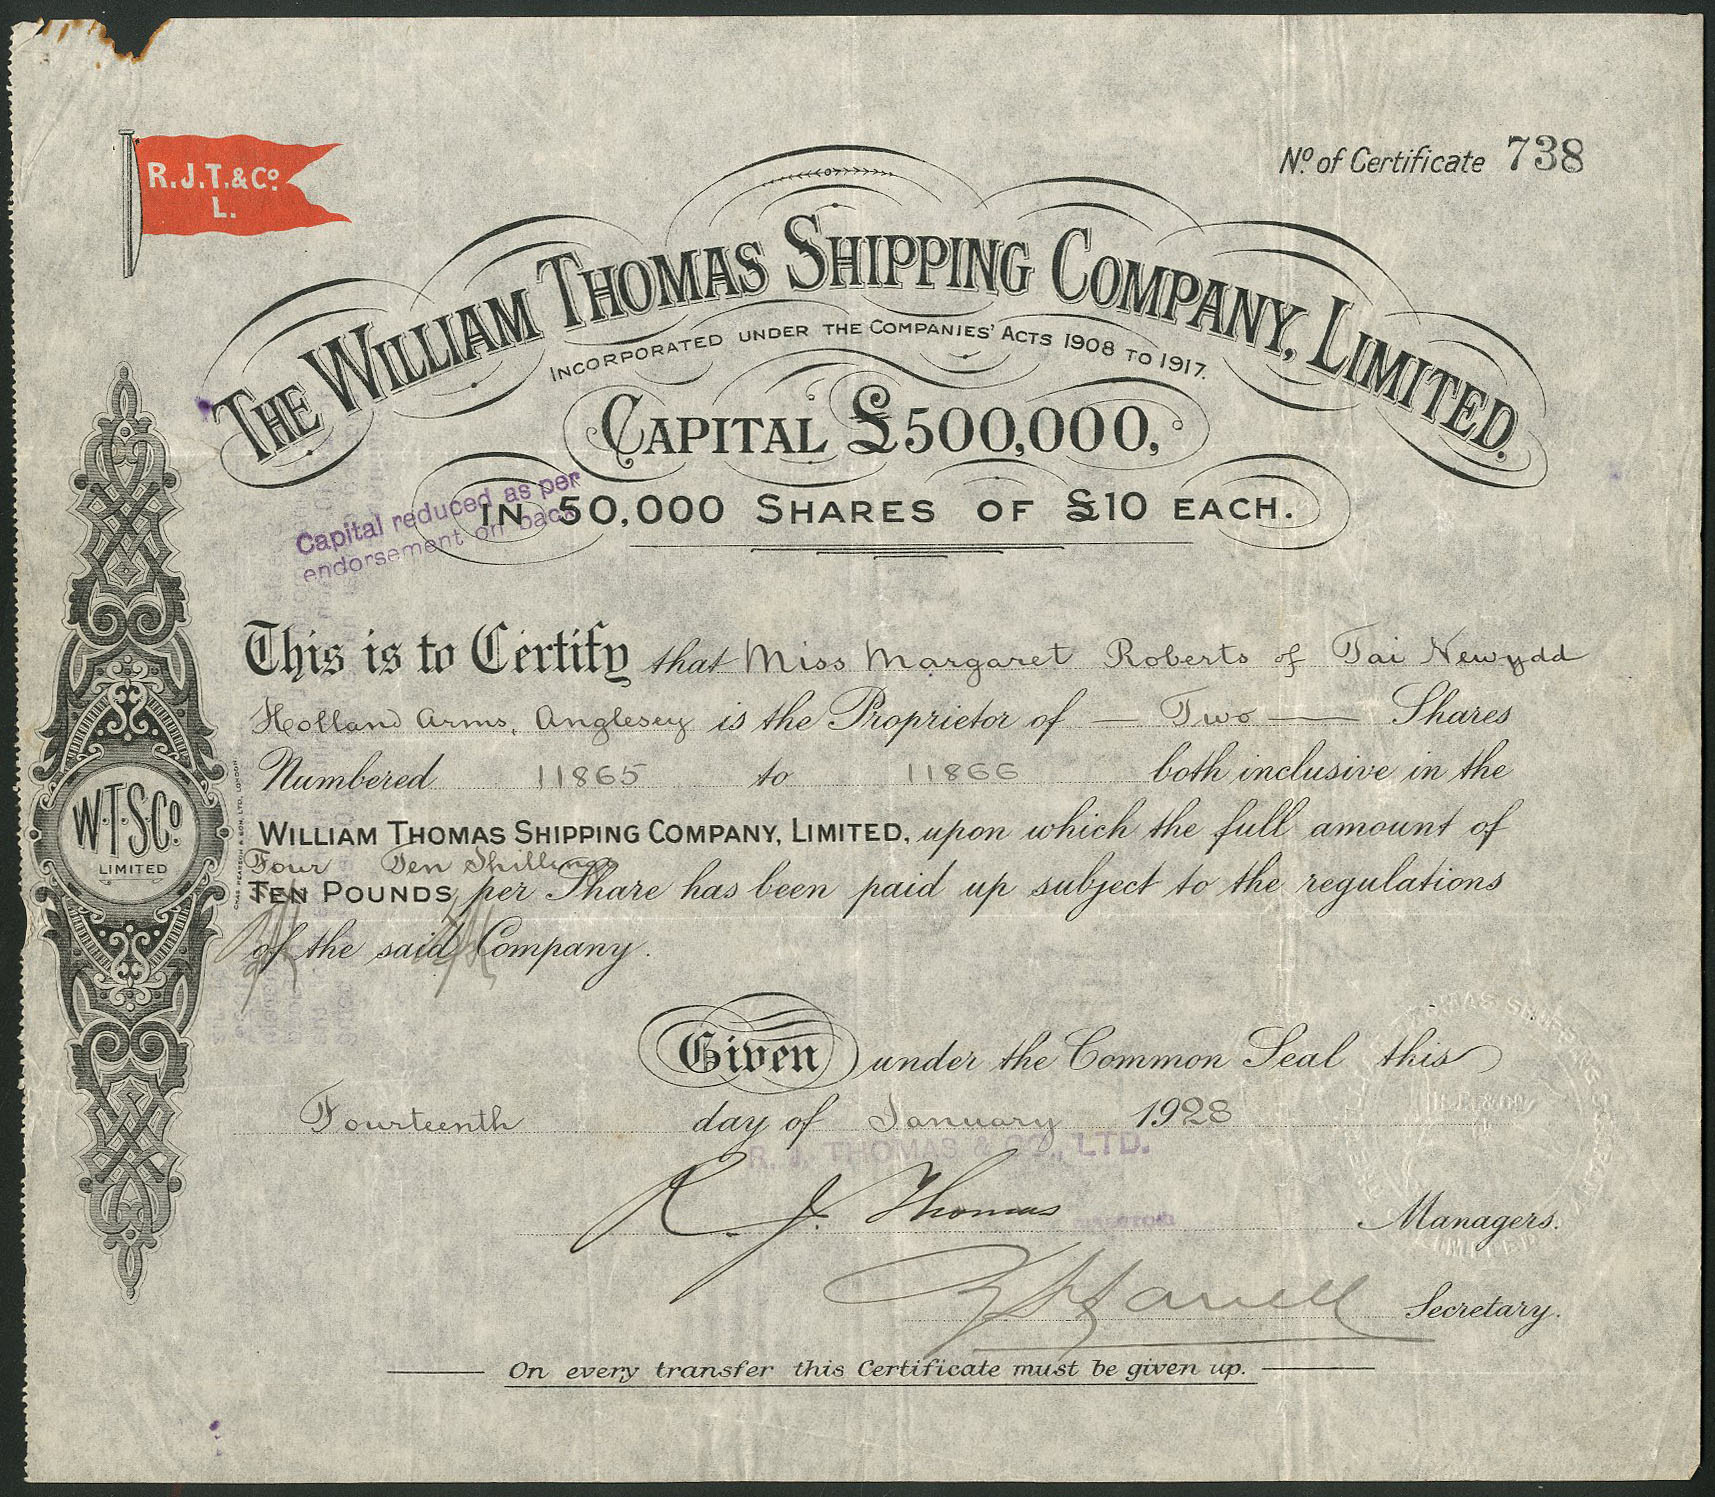 R.J.T.&Cº.
L.
Nº. of Certificate 738
THE WILLIAM THOMAS SHIPPING COMPANY, LIMITED.
INCORPORATED UNDER THE COMPANIES' ACTS 1908 TO 1917.
CAPITAL £500,000,
IN 50,000 SHARES OF £10 EACH.
Capital reduced as per
endorsement on back
This is to Certify that Miss Margaret Roberts of Tai Newydd
Holland Arms, Anglesey is the Proprietor of — Two — Shares
Numbered 11865 to 11866 both inclusive in the
WILLIAM THOMAS SHIPPING COMPANY, LIMITED, upon which the full amount of
Four Ten Shillings
TEN POUNDS per Share has been paid up subject to the regulations
of the said Company.
W.T.S.Cº.
LIMITED
Given under the Common Seal this
Fourteenth day of January 1928
R. J. THOMAS & CO., LTD.
R. J. Thomas Managers.
DIRECTOR
Secretary.
On every transfer this Certificate must be given up.